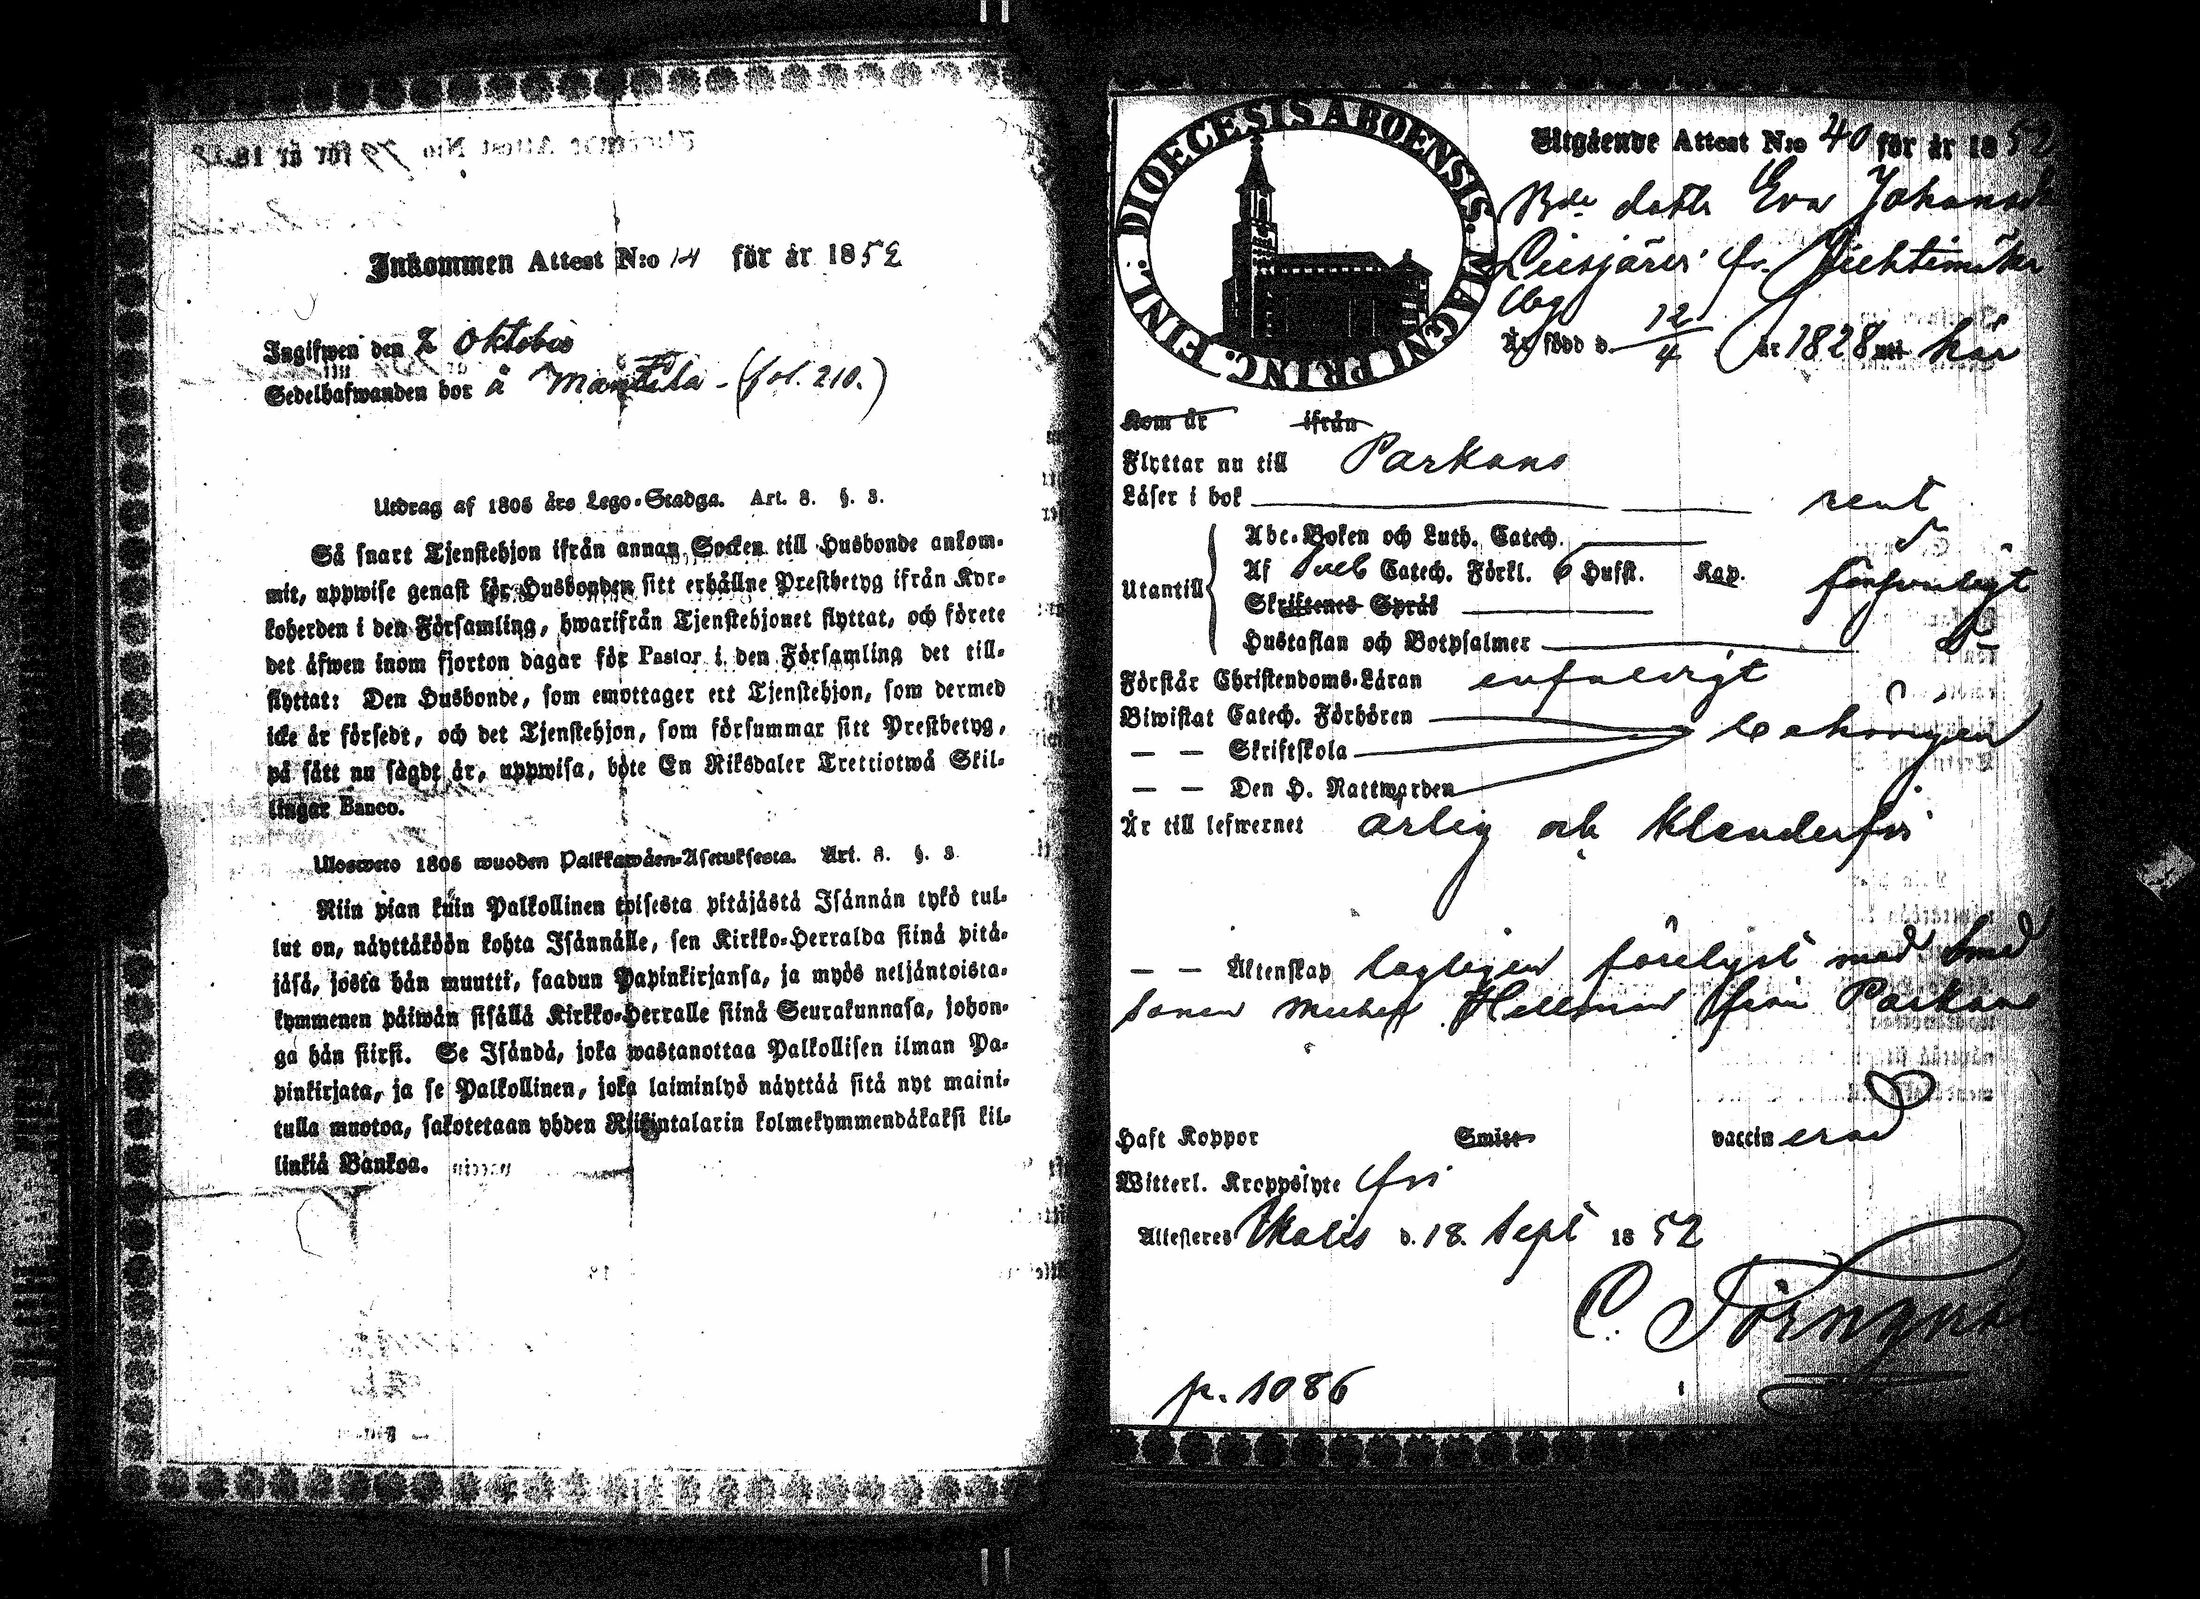 Inkommen Attest N:o 14 för år 1852
Ingifwen den 2 Oktober
Sedelhafwanden bor å Manttila - (fol. 210.)
Utdrag af 1805 års Lego-Stadga. Art. 8. §. 3.
Så snart Tjenstehjon ifrån annan Socken till Husbonde ankom-
mit, uppwise genast för Husbonden sitt erhållne Prestbetyg ifrån Kyr-
koherden i den Församling, hwarifrån Tjenstehjonet flyttat, och förete
det äfwen inom fjorton dagar för Pastor i den Församling det till-
flyttat: Den Husbonde, som emottager ett Tjenstehjon, som dermed
icke är försedt, och det Tjenstehjon, som försummar sitt Prestbetyg,
på sätt nu sagdt är, uppwisa, böte En Riksdaler Trettiotwå Skil-
lingar Banco.
Uloswето 1805 wuoden Palkkawäen-Asetuksesta. Art. 8. §. 3
Niin pian kuin Palkollinen toisesta pitäjästä Isännän tykö tul-
lut on, näyttäköön kohta Isännälle, sen Kirkko-Herralda siinä pitä-
jäsä, josta hän muutti, saadun Papinkirjansa, ja myös neljäntoista-
kymmenen päiwän sisällä Kirkko-Herralle siinä Seurakunnasa, johon-
ga hän siirsi. Se Isändä, joka wastanottaa Palkollisen ilman Pa-
pinkirjata, ja se Palkollinen, joka laiminlyö näyttää sitä nyt maini-
tulla muotoa, sakotetaan yhden Riikintalarin kolmekymmendäkaksi kil-
linkiä Bankoa.
DIOECESIS ABOENSIS. MAGNI PRINC. FINL.
Utgående Attest N:o 40 för år 1852
Bde dottr Eva Johansd
Liesjärvi fr.
Är född d. 12/4 år 1828 uti här
Kom år ifrån
Flyttar nu till Parkano
Läser i bok rent
Abc-Boken och Luth. Catech.
Utantill Af Catech. Förkl. 6 Hufst. Kap. försvarligt
Skriftenes Språk
Hustaflan och Botpsalmer
Förstår Christendoms-Läran enfaldigt
Biwistat Catech. Förhören behörigen
— — Skriftskola
— — Den H. Nattwarden
Är till lefwernet ärlig och klanderfri
— — Äktenskap lagligen förelyst med
sonen Hellman från Parkano
Haft Koppor Smitt vaccinerad
Witterl. Kroppslyte fri
Attesteras Ikalis d. 18. Sept 1852
C. Törnqvist
p. 1086